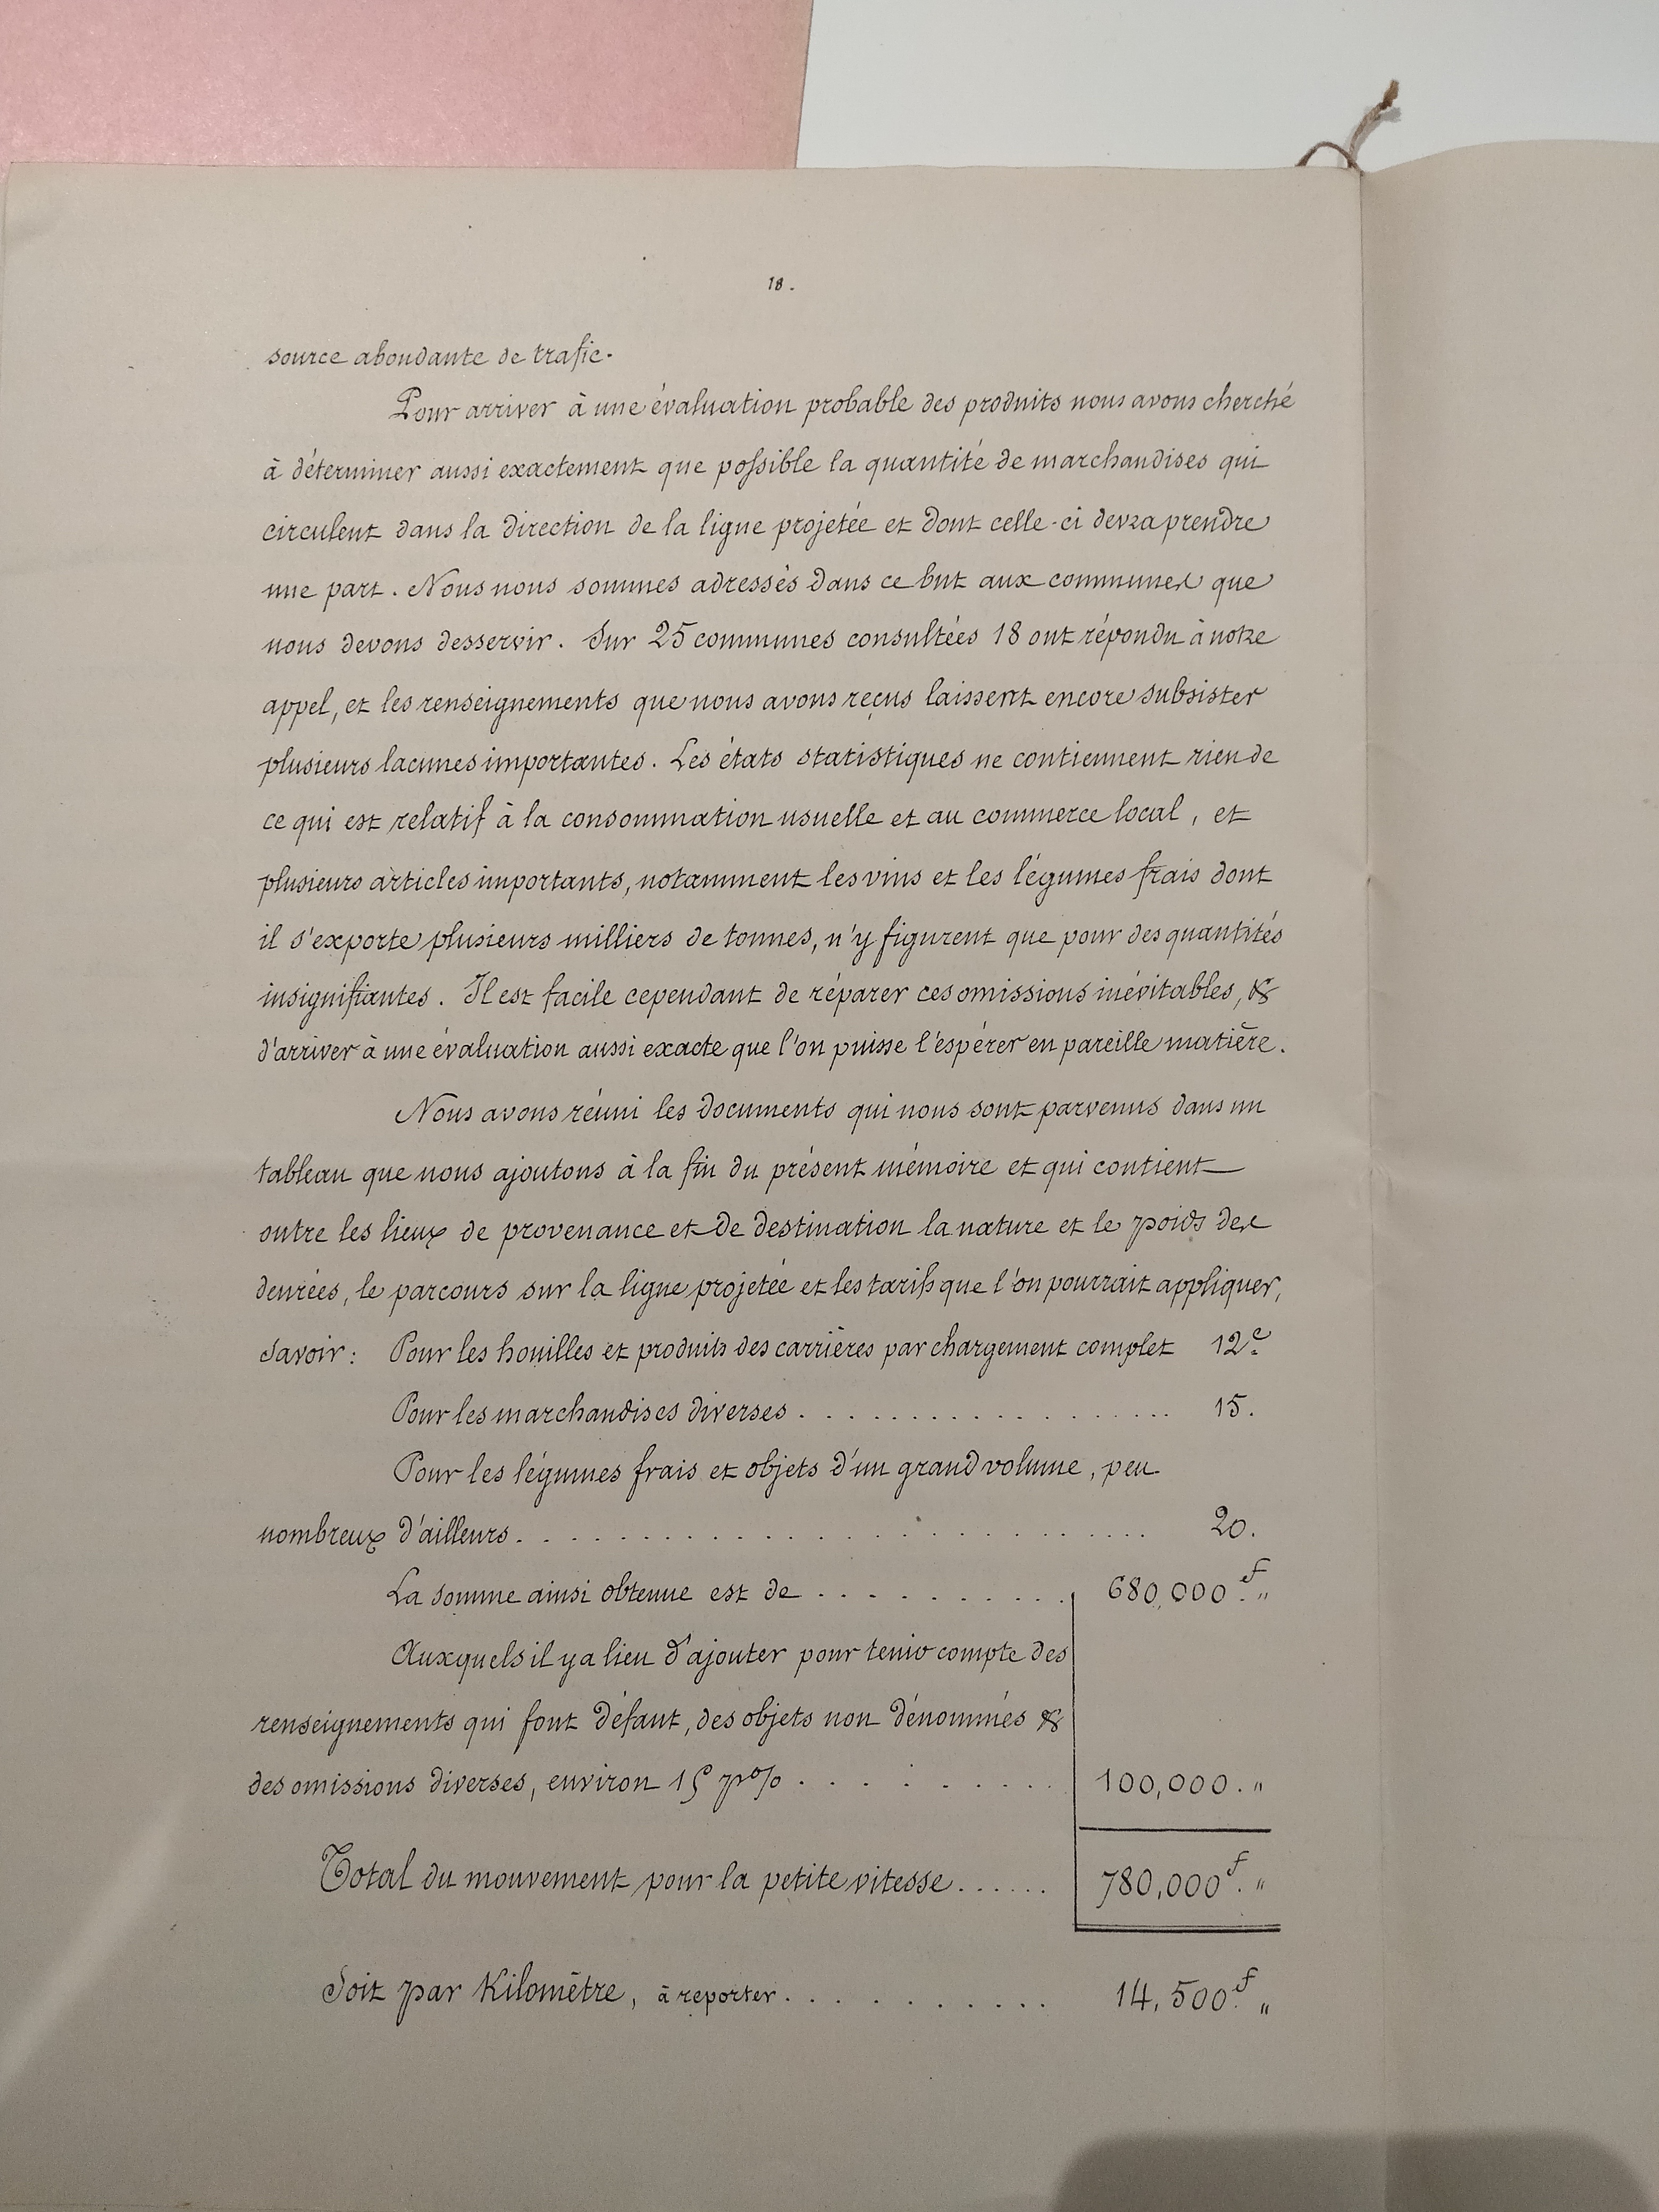 18.
source abondante de trafic.
Pour arriver à une évaluation probable des produits nous avons cherché
à déterminer aussi exactement que possible la quantité de marchandises qui
circulent dans la direction de la ligne projetée et dont celle-ci devra prendre
une part. Nous nous sommes adressés dans ce but aux communes que
nous devons desservir. Sur 25 communes consultées 18 ont répondu à notre
appel, et les renseignements que nous avons reçus laissent encore subsister
plusieurs lacunes importantes. Les états statistiques ne contiennent rien de
ce qui est relatif à la consommation usuelle et au commerce local, et
plusieurs articles importants, notamment les vins et les légumes frais dont
il s'exporte plusieurs milliers de tonnes, n'y figurent que pour des quantités
insignifiantes. Il est facile cependant de réparer ces omissions inévitables, &
d'arriver à une évaluation aussi exacte que l'on puisse l'espérer en pareille matière.
Nous avons réuni les documents qui nous sont parvenus dans un
tableau que nous ajoutons à la fin du présent mémoire et qui contient
outre les lieux de provenance et de destination la nature et le poids des
denrées, le parcours sur la ligne projetée et les tarifs que l'on pourrait appliquer,
Savoir : Pour les houilles et produits des carrières par chargement complet 12c.
Pour les marchandises diverses . . . . . . . . . . . . . . . . . . 15.
Pour les légumes frais et objets d'un grand volume, peu
nombreux d'ailleurs . . . . . . . . . . . . . . . . . . . . . . . . . . 20.
La somme ainsi obtenue est de . . . . . . . . . . . 680,000f. "
Auxquels il y a lieu d'ajouter pour tenir compte des
renseignements qui font défaut, des objets non dénommés &
des omissions diverses, environ 15 p% . . . . . . . . . . 100,000. "
Total du mouvement pour la petite vitesse . . . . . . 780,000f. "
Soit par Kilomètre, à reporter . . . . . . . . . . . 14,500f. "